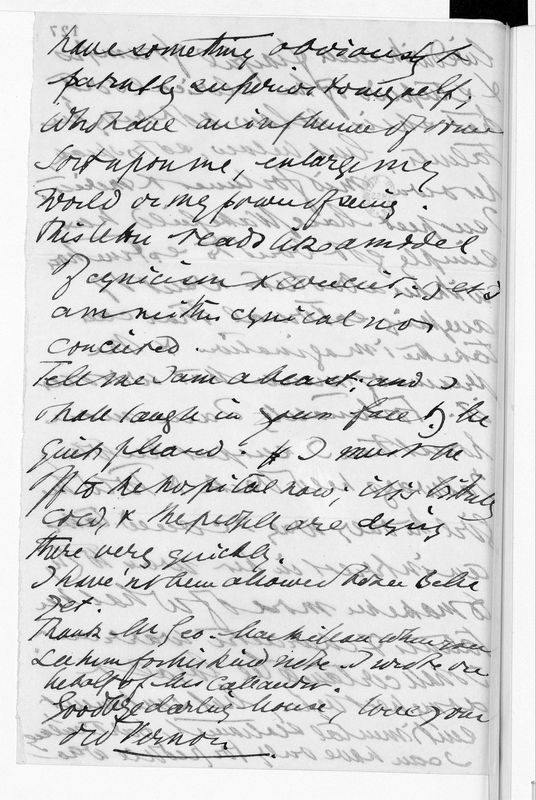 have something obviously &
patently superior to myself,
who have an influence of some
sort upon me, enlarge my
world or my power of seeing.
This letter reads like a model
of cynicism & conceit; & yet I
am neither cynical nor
conceited.
Tell me I am a beast; and I
shall laugh in your face & be
quite pleased. I must be
off to the hospital now; it is bitterly
cold, & the people are dying
there very quickly.
I haven't been allowed
yet.
Thank Mr Geo. Macmillan when you
see him for his kind note. I wrote on
behalf of
Goodbye darling mouse, love your
old Vernon.